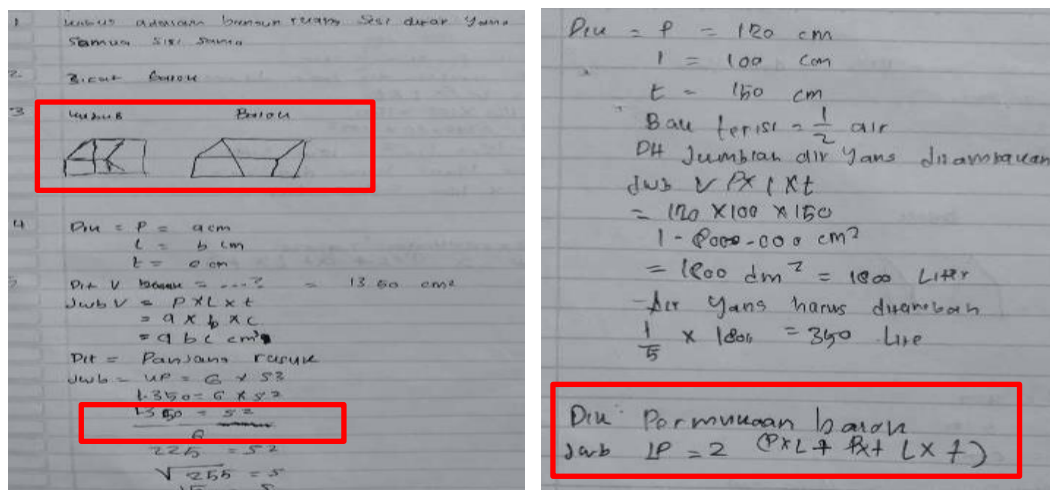 1 kubus adalah bangun ruang sisi datar yang
samua sisi sama
2
3 kubus Balok
4 Diu = P = a cm
L = b cm
t = c cm
5 Dit V = ....? = 13 50 cm²
Jwb V = P x L x t
= a x b x c
= a b c cm³
Dit = Panjang rusuk
Jwb = LP = 6 x S2
1.350 = 6 x S2
1350 = S2
6
225 = S2
√255 = S
Diu = P = 120 cm
l = 100 cm
t = 150 cm
Bak terisi = 1/2 air
Dit Jumblah air yang ditambahkan
Jwb V P x l x t
= 120 x 100 x 150
= 1800 dm³ = 1800 Liter
- Air yang harus ditambah
1/5 x 1800 = 350 Lite
Diu: Permukaan balok
Jawb LP = 2 (PxL + Pxt Lxt)